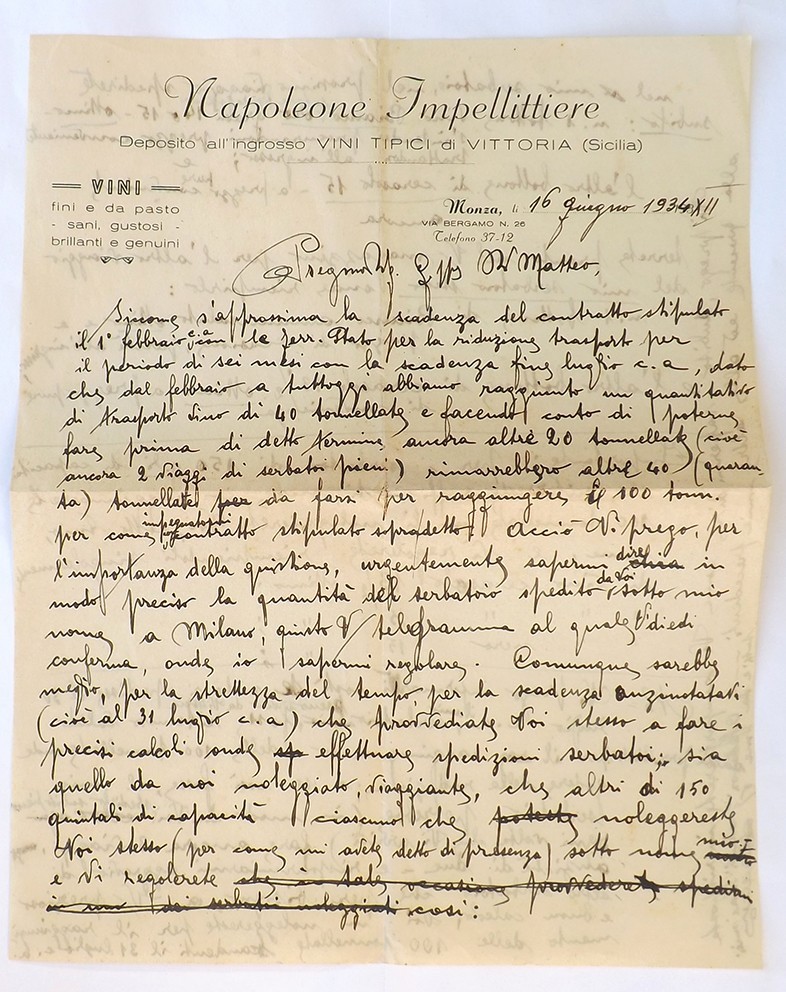 Napoleone Impellittiere
Deposito all'ingrosso VINI TIPICI di VITTORIA (Sicilia)
VINI
fini e da pasto
- sani, gustosi -
brillanti e genuini
Monza, li 16 giugno 1934 XII
VIA BERGAMO N. 26
Telefono 37-12
Matteo,
Siccome s'approssima la scadenza del contratto stipulato
il 1° febbraio c.a con le ferr. Stato per la riduzione trasporto per
il periodo di sei mesi con la scadenza fine luglio c.a, dato
che dal febbraio a tuttoggi abbiamo raggiunto un quantitativo
di trasporto sino di 40 tonnellate e facendo conto di poterne
fare prima di detto termine ancora altre 20 tonnellate (cioè
ancora 2 viaggi di serbatoi pieni) rimarrebbero altre 40 (quaran-
ta) tonnellate per da farsi per raggiungere il 100 tonn.
per come impegnatomi contratto stipulato sopradetto. Acciò Vi prego, per
l'importanza della quistione, urgentemente sapermi dire in
modo preciso la quantità del serbatoio spedito da Voi sotto mio
nome a Milano, giusto V/ telegramma al quale Vi diedi
conferma, onde io sapermi regolare. Comunque sarebbe
meglio, per la strettezza del tempo, per la scadenza anzinotatavi
(cioè al 31 luglio c.a) che provvediate Voi stesso a fare i
precisi calcoli onde effettuare spedizioni serbatoi, sia
quello da noi noleggiato, viaggiante, che altri di 150
quintali di capacità ciascuno che poteste noleggereste
Voi stesso (per come mi avete detto di presenza) sotto nome mio
e Vi regolerete che in tale occasione provvederete spedirmi
in uno dei serbatoi noleggiati così: